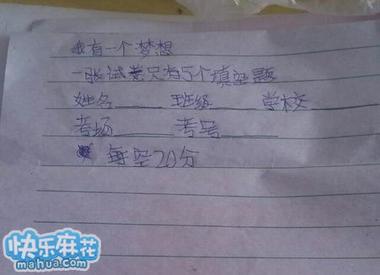 我有一个梦想
一张试卷只有5个填空题
姓名____ 班级____ 学校
考场____ 考号____
每空20分
快乐麻花
mahua.com